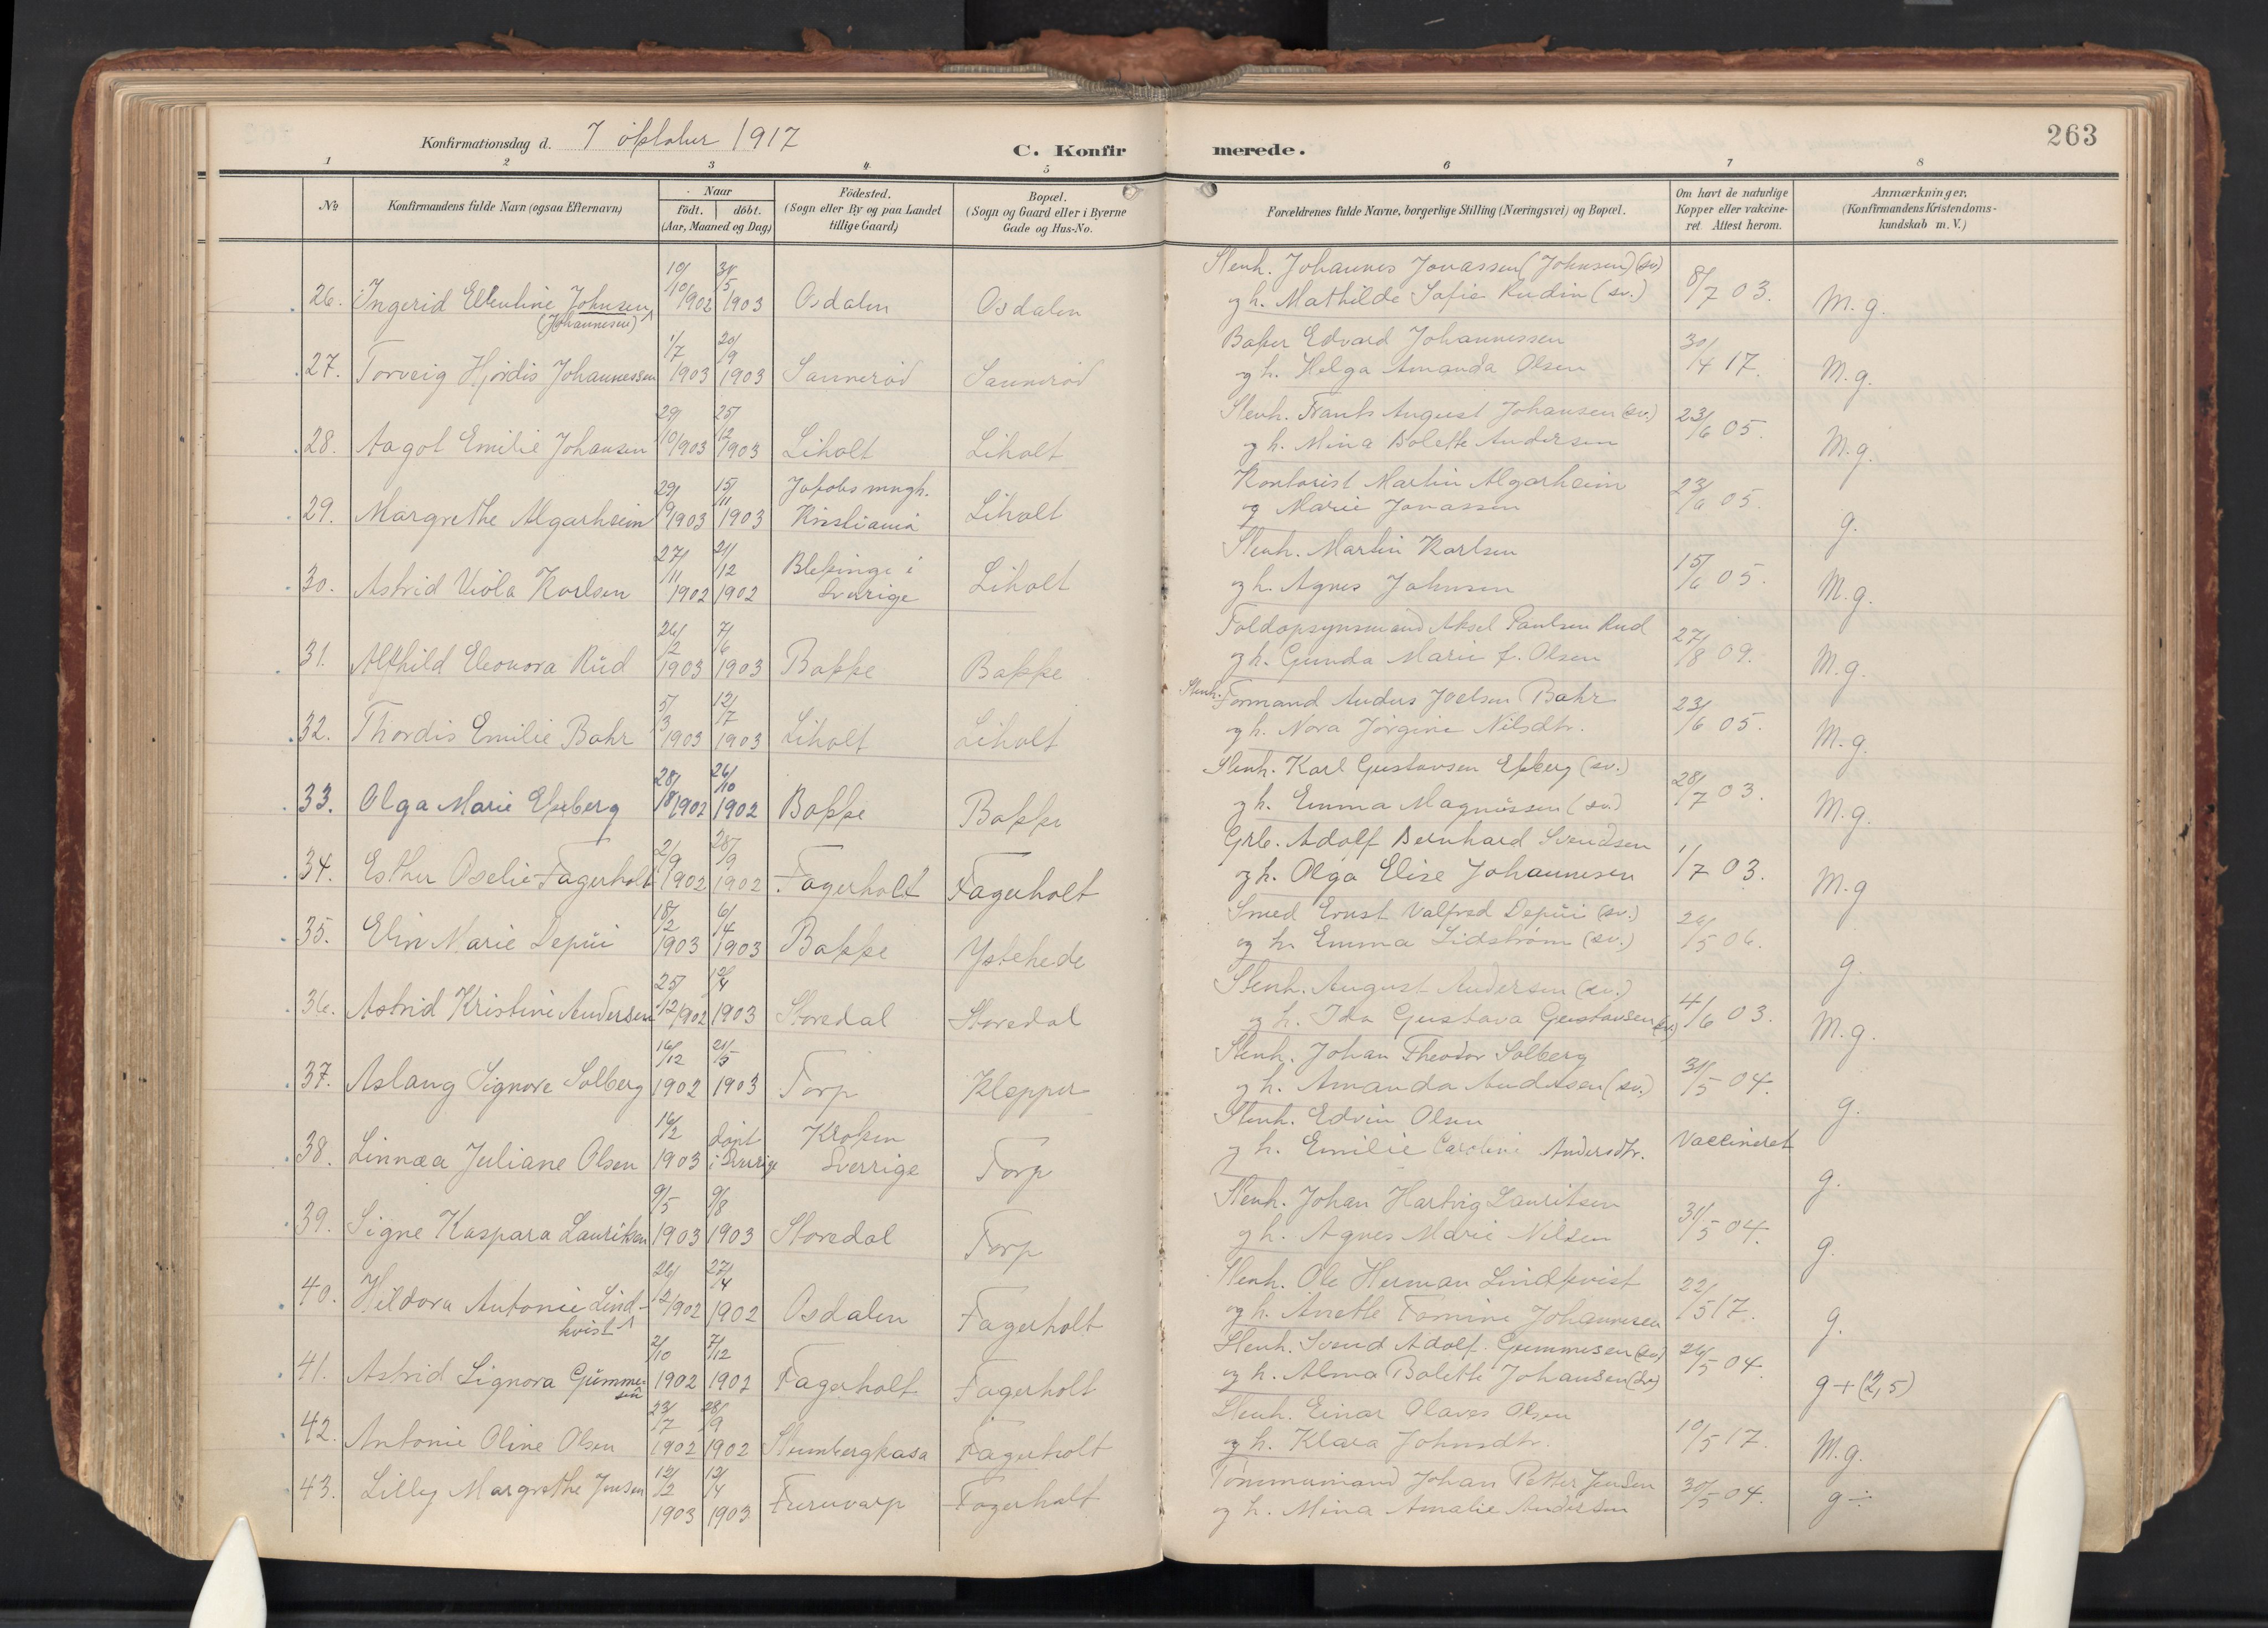 263
Konfirmationsdag d. 7 oktober 1917
C. Konfirmerede.
1 2 3 4 5 6 7 8
No
Konfirmandens fulde Navn (ogsaa Efternavn)
Naar
födt. döbt.
(Aar, Maaned og Dag)
Födested.
(Sogn eller By og paa Landet
tillige Gaard)
Bopæl.
(Sogn og Gaard eller i Byerne
Gade og Hus-No.
Forældrenes fulde Navne, borgerlige Stilling (Næringsvei) og Bopæl.
Om havt de naturlige
Kopper eller vakcine-
ret Attest herom.
Anmærkninger.
(Konfirmandens Kristendoms-
kundskab m. V.)
Stenh. Johannes Jonassen (Johnsen) (sv)
26. Ingerid Ellentine Johnsen 10/10 1902 31/5 1903 Osdalen Osdalen og h. Mathilde Sofie Rudin (sv.) 8/7 03. M.g.
(Johannesen)
Baker Edvard Johannessen
27. Torveig Hjördis Johannessen 1/7 1903 20/9 1903 Sannerød Sannerød og h. Helga Amanda Olsen 30/4 17. M.g.
Stenh. Frants August Johansen (sv.)
28. Aagot Emilie Johansen 29/10 1903 25/12 1903 Liholt Liholt og h. Mina Bolette Andersen 23/6 05. M.g.
Jakobs mngh. Kontorist Martin Algarheim
29. Margrethe Algarheim 29/9 1903 15/11 1903 Kristiania Liholt og Marie Jonassen 23/6 05. g.
Blekinge i Stenh. Martin Karlsen
30. Astrid Viola Karlsen 27/11 1902 21/12 1902 Sverige Liholt og h. Agnes Johnsen 15/6 05. M.g.
Toldopsynsmand Aksel Paulsen Rud
31. Alfhild Eleonora Rüd 26/2 1903 7/6 1903 Bakke Bakke og h. Gunda Marie f. Olsen 27/8 09. M.g.
Stenh. Formand Anders Joelsen Bahr
32. Thordis Emilie Bahr 5/3 1903 12/7 1903 Liholt Liholt og h. Nora Jörgine Nilsdtr. 23/6 05. M.g.
Stenh. Karl Gustavsen Ekberg (sv.)
33. Olga Marie Ekeberg 28/8 1902 26/10 1902 Bakke Bakke og h. Emma Magnüssen (sv.) 28/7 03. M.g.
Grb. Adolf Bernhard Svendsen
34. Esther Oselie Fagerholt 2/9 1902 28/9 1902 Fagerholt Fagerholt og h. Olga Elise Johannesen 1/7 03. M.g
Smed Ernst Valfred Depüi (sv.)
35. Elin Marie Depüi 18/2 1903 6/4 1903 Bakke Ystehede og h. Emma Lidström (sv.) 26/5 06. g.
Stenh. August Andersen (sv.)
36. Astrid Kristine Andersen 25/12 1902 12/4 1903 Storedal Storedal og h. Ida Gustava Gustavsen (sv) 4/6 03. M.g.
Stenh. Johan Theodor Solberg
37. Aslaug Signore Solberg 16/12 1902 21/5 1903 Torp Klepper og h. Amanda Andersen (sv.) 31/5 04. g.
Stenh. Edvin Olsen
38. Linnæa Juliane Olsen 16/2 1903 döpt i Sverige Kroken Sverrige Torp og h. Emilie Caroline Andersdtr. Vaccineret g.
Stenh. Johan Hartvig Lauritsen
39. Signe Kaspara Lauritsen 9/5 1903 9/8 1903 Storedal Torp og h. Agnes Marie Nilsen 31/5 04. g.
Stenh. Ole Herman Lindkvist
40. Heldora Antonie Lind- 26/12 1902 27/4 1902 Osdalen Fagerholt og h. Anette Tomine Johannesen 22/5 17. g.
kvist
Stenh. Svend Adolf Gummesen (sv)
41. Astrid Signora Gümme- 2/10 1902 7/12 1902 Fagerholt Fagerholt og h. Alma Bolette Johansen (sv) 26/5 04. g + (2,5)
sen
Stenh. Einar Olaves Olsen
42. Antonie Oline Olsen 23/7 1902 28/9 1902 Stumbergkasa Fagerholt og h. Klara Johnsdtr. 10/5 17. M.g.
Tömmermand Johan Petter Jensen
43. Lilly Margrethe Jensen 12/2 1903 12/4 1903 Furuvarp Fagerholt og h. Mina Amalie Andersen 30/5 04. g ÷